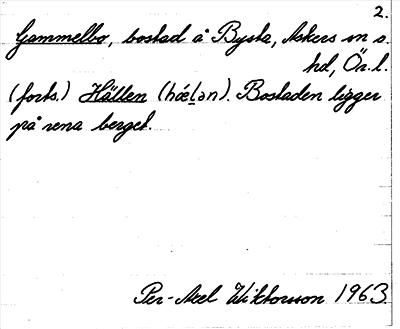 2.
Gammelbo, bostad å Bysta, Askers sn o.
hd, Ör. l.
(forts.) Hällen (hǽḷən). Bostaden ligger
på rena berget.
Per-Axel Wiktorsson 1963